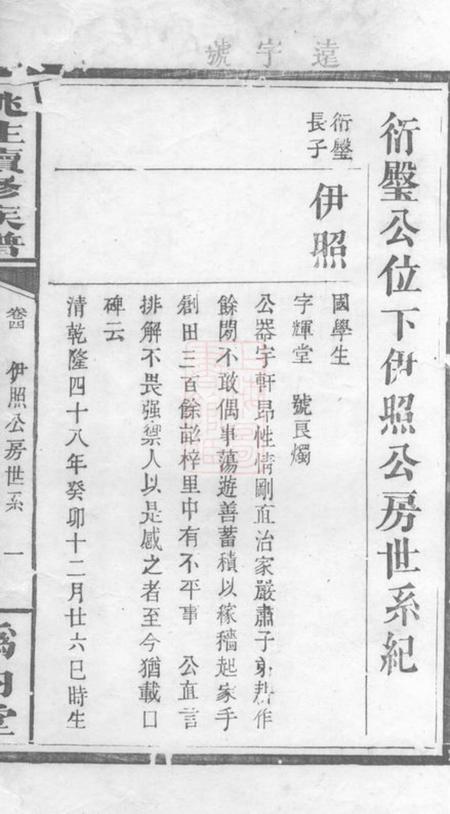 遠字號
衍鑿公位下伊照公房世系紀
衍鑿
長子
伊照
國學生
字輝堂 號良燭
公器宇軒昂性情剛直治家嚴肅子弟耕作
餘閒不敢偶事蕩遊善蓄積以稼穡起家手
創田三百餘畝梓里中有不平事 公直言
排解不畏强禦人以是感之者至今猶載口
碑云
清乾隆四十八年癸卯十二月廿六巳時生
氏續修族譜
卷四 伊照公房世系 一
堂